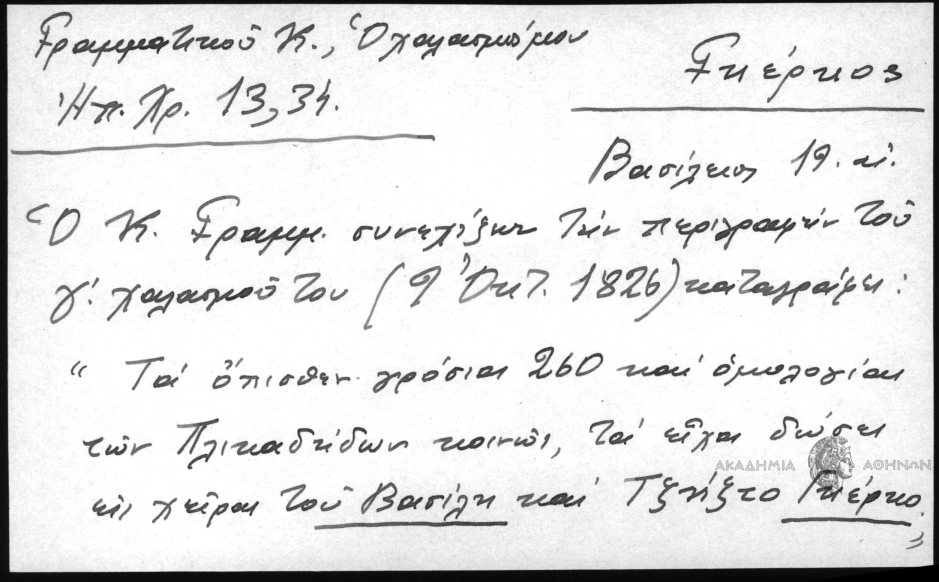 Γραμματικοῦ Κ., Ὁ χαλασμός μου
Ἠπ. Χρ. 13, 34.
Γκέρκος
Βασίλειος 19. αἰ.
Ὁ Κ. Γραμμ. συνεχίζων τὴν περιγραφὴν τοῦ
γ΄. χαλασμοῦ του (9 Ὀκτ. 1826) καταγράφει:
“ Τὰ ὄπισθεν γρόσια 260 καὶ ὁμολογίαι
τῶν Πλικαδιτῶν κοινῶς, τὰ εἶχα δώσει
εἰς χεῖρας τοῦ Βασίλη καὶ Γκέρκο.”
ΑΚΑΔΗΜΙΑ ΑΘΗΝΩΝ